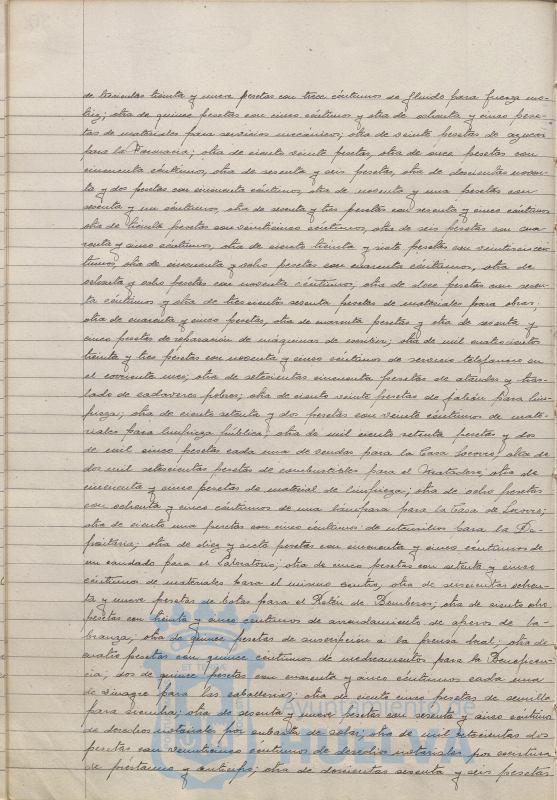 de trescientas treinta y nueve pesetas con trece céntimos de fluido para fuerza mo-
triz; otra de quince pesetas con cinco céntimos y otra de ochenta y cinco pese-
tas de materiales para servicios mecánicos; otra de veinte pesetas de azúcar
para la Farmacia; otra de ciento veinte pesetas, otra de once pesetas con
cincuenta céntimos, otra de sesenta y seis pesetas, otra de doscientas noven-
ta y dos pesetas con cincuenta céntimos, otra de noventa y una pesetas con
sesenta y un céntimos, otra de setenta y tres pesetas con sesenta y cinco céntimos
otra de treinta pesetas con veinticinco céntimos, otra de seis pesetas con cua-
renta y cinco céntimos, otra de ciento treinta y siete pesetas con veinticinco cén-
timos, otra de cincuenta y ocho pesetas con cuarenta céntimos, otra de
ochenta y ocho pesetas con noventa céntimos, otra de doce pesetas con seten-
ta céntimos y otra de trescientas sesenta pesetas de materiales para obras;
otra de cuarenta y cinco pesetas, otra de cuarenta pesetas y otra de sesenta y
cinco pesetas de reparación de máquinas de escribir; otra de mil cuatrocientas
treinta y tres pesetas con noventa y cinco céntimos de servicio telefónico en
el corriente mes; otra de setecientas cincuenta pesetas de ataudes y tras-
lado de cadáveres pobres; otra de ciento veinte pesetas de jabón para lim-
pieza; otra de ciento setenta y dos pesetas con veinte céntimos de mate-
riales para limpieza pública; otra de mil ciento setenta pesetas y dos
de mil cinco pesetas cada una de viandas para la Casa Socorro; otra de
dos mil setecientas pesetas de combustibles para el Matadero; otra de
cincuenta y cinco pesetas de material de limpieza; otra de ocho pesetas
con ochenta y cinco céntimos de una lámpara para la Casa de Socorro;
otra de ciento una pesetas con cinco céntimos de utensilios para la De-
positaria; otra de diez y siete pesetas con cincuenta y cinco céntimos de
un candado para el Laboratorio; otra de cinco pesetas con setenta y cinco
céntimos de materiales para el mismo centro, otra de seiscientas ochen-
ta y nueve pesetas de botas para el Retén de Bomberos; otra de ciento ocho
pesetas con treinta y cinco céntimos de arrendamiento de aperos de la-
branza; otra de quince pesetas de suscripción a la prensa local; otra de
cuatro pesetas con quince céntimos de medicamentos para la Beneficen-
cia; dos de quince pesetas con cuarenta y cinco céntimos cada una
de vinagre para las caballerías; otra de ciento cinco pesetas de semilla
para siembra; otra de sesenta y nueve pesetas con sesenta y cinco céntimos
de derechos notariales por subasta de setos; otra de mil setecientas dos
pesetas con veinticinco céntimos de derechos notariales por escritura
de préstamos y anticipos; otra de doscientas sesenta y seis pesetas
Ayuntamiento de
HUELVA